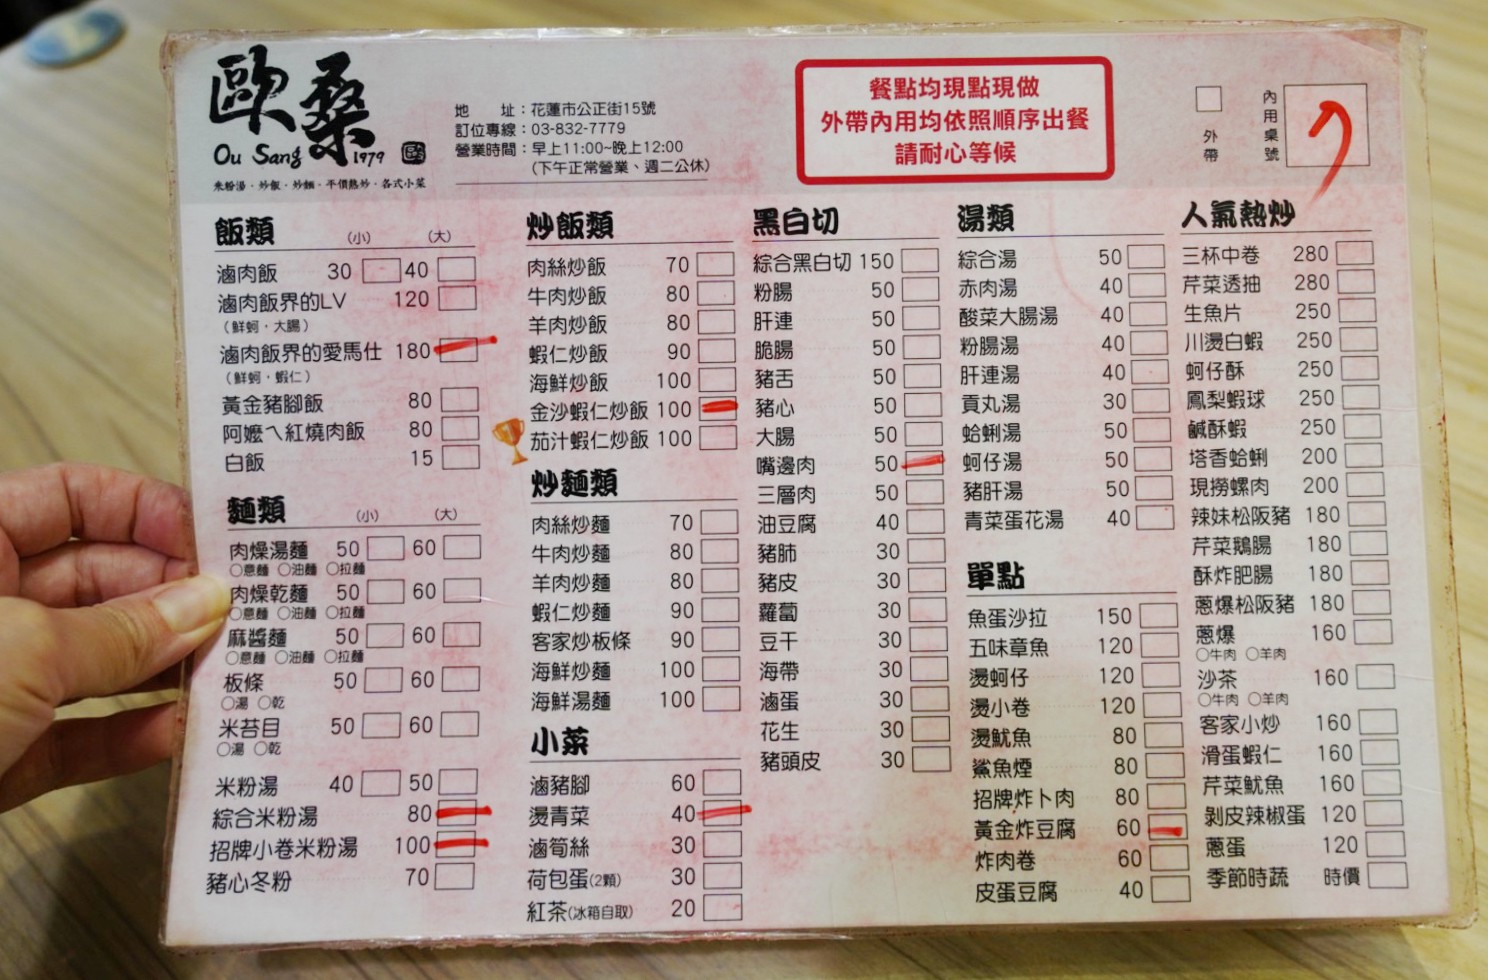 歐桑
Ou Sang 1979
米粉湯．炒飯．炒麵．平價熱炒．各式小菜
地　　址：花蓮市公正街15號
訂位專線：03-832-7779
營業時間：早上11:00~晚上12:00
(下午正常營業、週二公休)
餐點均現點現做
外帶內用均依照順序出餐
請耐心等候
外帶
內用桌號
7
飯類 (小) (大)
滷肉飯 30 40
滷肉飯界的LV 120
(鮮蚵．大腸)
滷肉飯界的愛馬仕 180
(鮮蚵．蝦仁)
黃金豬腳飯 80
阿嬤ㄟ紅燒肉飯 80
白飯 15
麵類 (小) (大)
肉燥湯麵 50 60
○意麵 ○油麵 ○拉麵
肉燥乾麵 50 60
○意麵 ○油麵 ○拉麵
麻醬麵 50 60
○意麵 ○油麵 ○拉麵
板條 50 60
○湯 ○乾
米苔目 50 60
○湯 ○乾
米粉湯 40 50
綜合米粉湯 80
招牌小卷米粉湯 100
豬心冬粉 70
炒飯類
肉絲炒飯 70
牛肉炒飯 80
羊肉炒飯 80
蝦仁炒飯 90
海鮮炒飯 100
金沙蝦仁炒飯 100
茄汁蝦仁炒飯 100
炒麵類
肉絲炒麵 70
牛肉炒麵 80
羊肉炒麵 80
蝦仁炒麵 90
客家炒板條 90
海鮮炒麵 100
海鮮湯麵 100
小菜
滷豬腳 60
燙青菜 40
滷筍絲 30
荷包蛋(2顆) 30
紅茶(冰箱自取) 20
黑白切
綜合黑白切 150
粉腸 50
肝連 50
脆腸 50
豬舌 50
豬心 50
大腸 50
嘴邊肉 50
三層肉 50
油豆腐 40
豬肺 30
豬皮 30
蘿蔔 30
豆干 30
海帶 30
滷蛋 30
花生 30
豬頭皮 30
湯類
綜合湯 50
赤肉湯 40
酸菜大腸湯 40
粉腸湯 40
肝連湯 40
貢丸湯 30
蛤蜊湯 50
蚵仔湯 50
豬肝湯 50
青菜蛋花湯 40
單點
魚蛋沙拉 150
五味章魚 120
燙蚵仔 120
燙小卷 120
燙魷魚 80
鯊魚煙 80
招牌炸卜肉 80
黃金炸豆腐 60
炸肉卷 60
皮蛋豆腐 40
人氣熱炒
三杯中卷 280
芹菜透抽 280
生魚片 250
川燙白蝦 250
蚵仔酥 250
鳳梨蝦球 250
鹹酥蝦 250
塔香蛤蜊 200
現撈螺肉 200
辣妹松阪豬 180
芹菜鵝腸 180
酥炸肥腸 180
蔥爆松阪豬 180
蔥爆 160
○牛肉 ○羊肉
沙茶 160
○牛肉 ○羊肉
客家小炒 160
滑蛋蝦仁 160
芹菜魷魚 160
剝皮辣椒蛋 120
蔥蛋 120
季節時蔬 時價